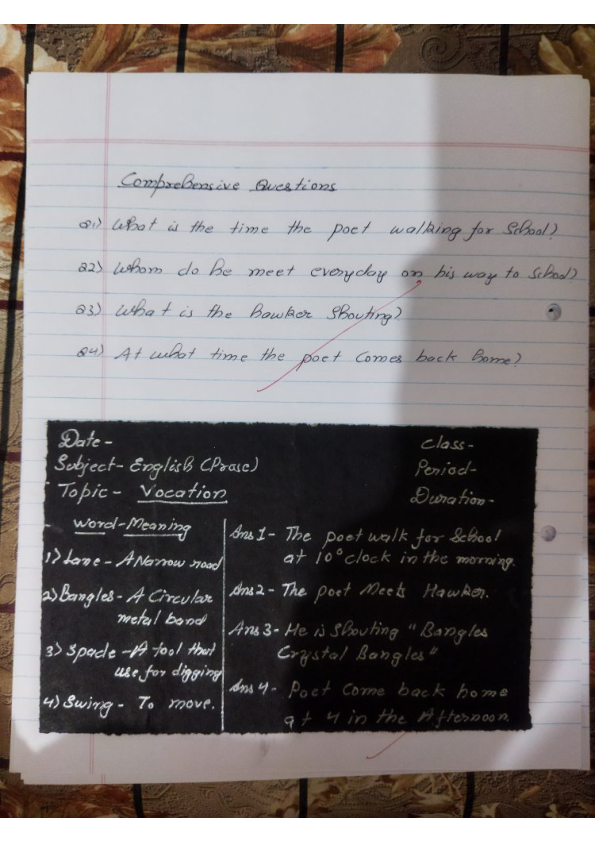 Comprehensive Questions
Q1) What is the time the poet walking for School?
Q2) Whom do he meet everyday on his way to School?
Q3) What is the hawker Shouting?
Q4) At what time the poet Comes back home?
Date-
Subject- English (Prose)
Topic- Vocation
Class-
Period-
Duration-
Word-Meaning
1) Lane - A Narrow road
2) Bangles - A Circular
metal band
3) Spade - A tool that
use for digging
4) Swing - To move.
Ans 1 - The poet walk for School
at 10°clock in the morning.
Ans 2 - The poet Meets Hawker.
Ans 3 - He is Shouting "Bangles
Crystal Bangles"
Ans 4 - Poet Come back home
at 4 in the Afternoon